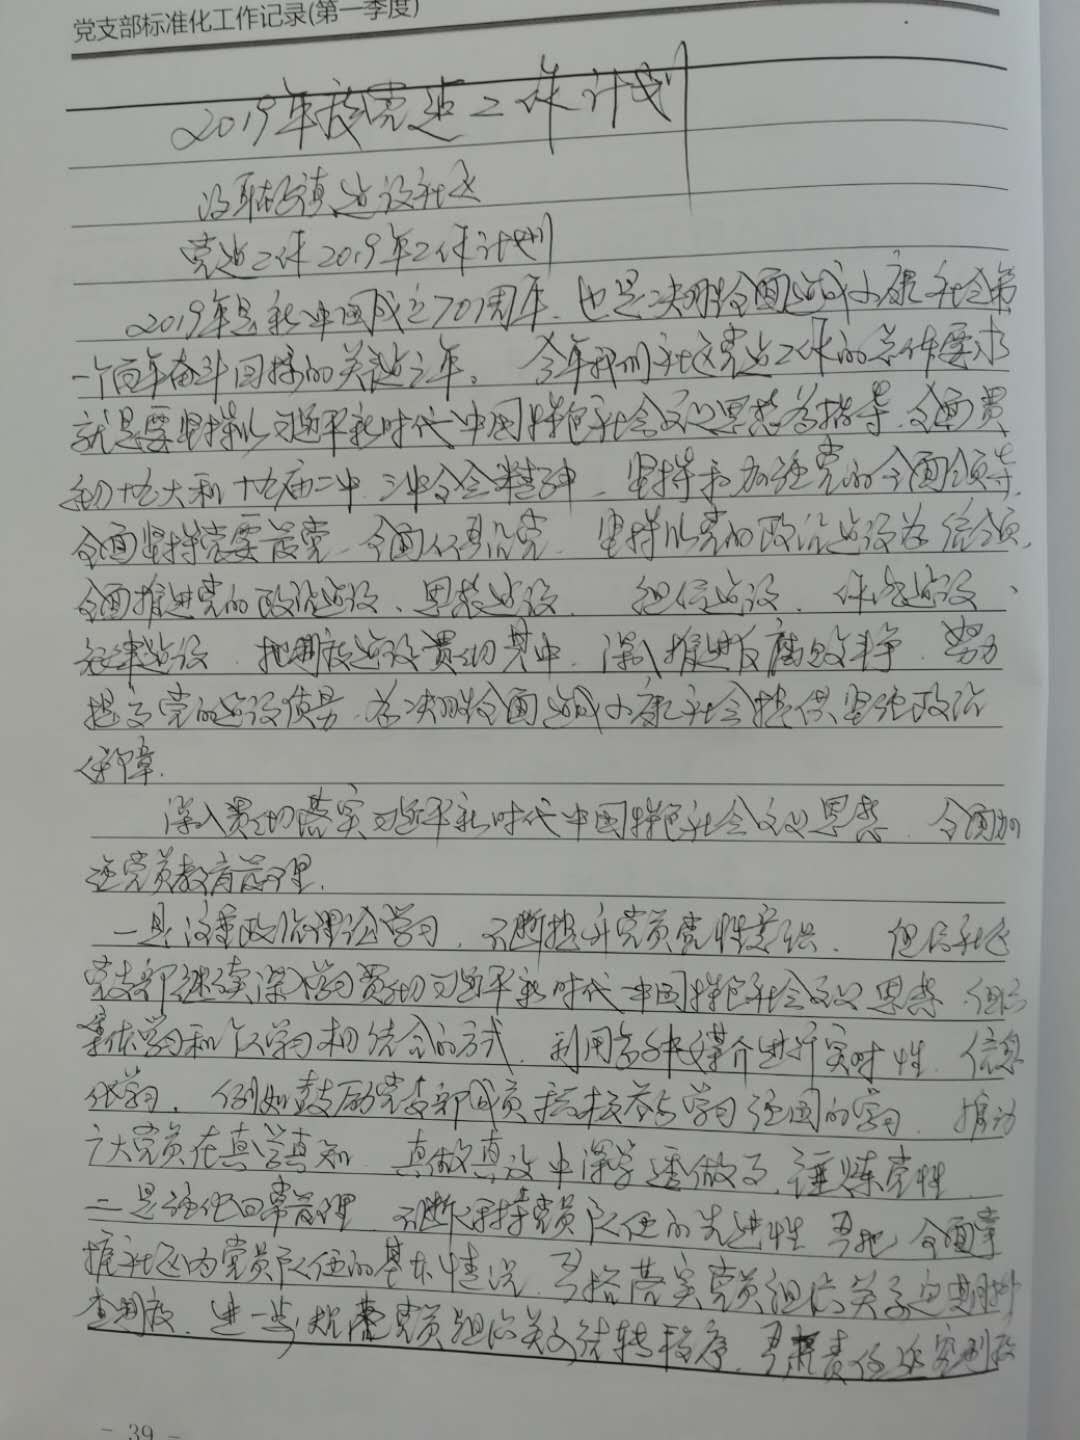 党支部标准化工作记录(第一季度)
2019年度党建工作计划
镇建设社区
党建工作2019年工作计划
2019年是新中国成立70周年、也是决胜全面建成小康社会第
一个百年奋斗目标的关键之年。今年我们社区党建工作的总体要求
就是要坚持以习近平新时代中国特色社会主义思想为指导、全面贯
彻十九大和十九届二中、三中全会精神、坚持和加强党的全面领导、
全面坚持党要管党、全面从严治党、坚持以党的政治建设为统领、
全面推进党的政治建设、思想建设、组织建设、作风建设、
纪律建设、把制度建设贯彻其中、深入推进反腐败斗争、努力
提高党的建设质量、为决胜全面建成小康社会提供坚强政治
保障.
深入贯彻落实习近平新时代中国特色社会主义思想、全面加
强党员教育管理.
一是注重政治理论学习、不断提升党员党性意识、组织社区
党支部继续深入学习贯彻习近平新时代中国特色社会主义思想、组织
集体学习和个人学习相结合的方式、利用多种媒介进行实时性、信息
化学习、例如鼓励党支部成员积极参与学习强国的学习、推动
广大党员在真学真知、真做真改中深学透做了、锤炼党性、
二是强化日常管理、不断保持党员队伍的先进性、要把全面掌
握社区内党员队伍的基本情况、严格落实党员组织关系定期排
查制度、进一步规范党员组织关系结转程序、严肃责任追究制度
- 39 -